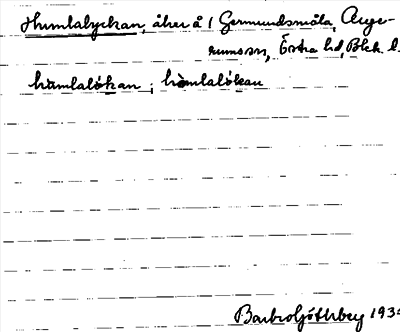 Humlalyckan, åker å 1 Germundsmåla, Auge-
rums sn, Östra hd, Blek. l.
humlalökan ; hömlalökan
Barbro Götherby 193